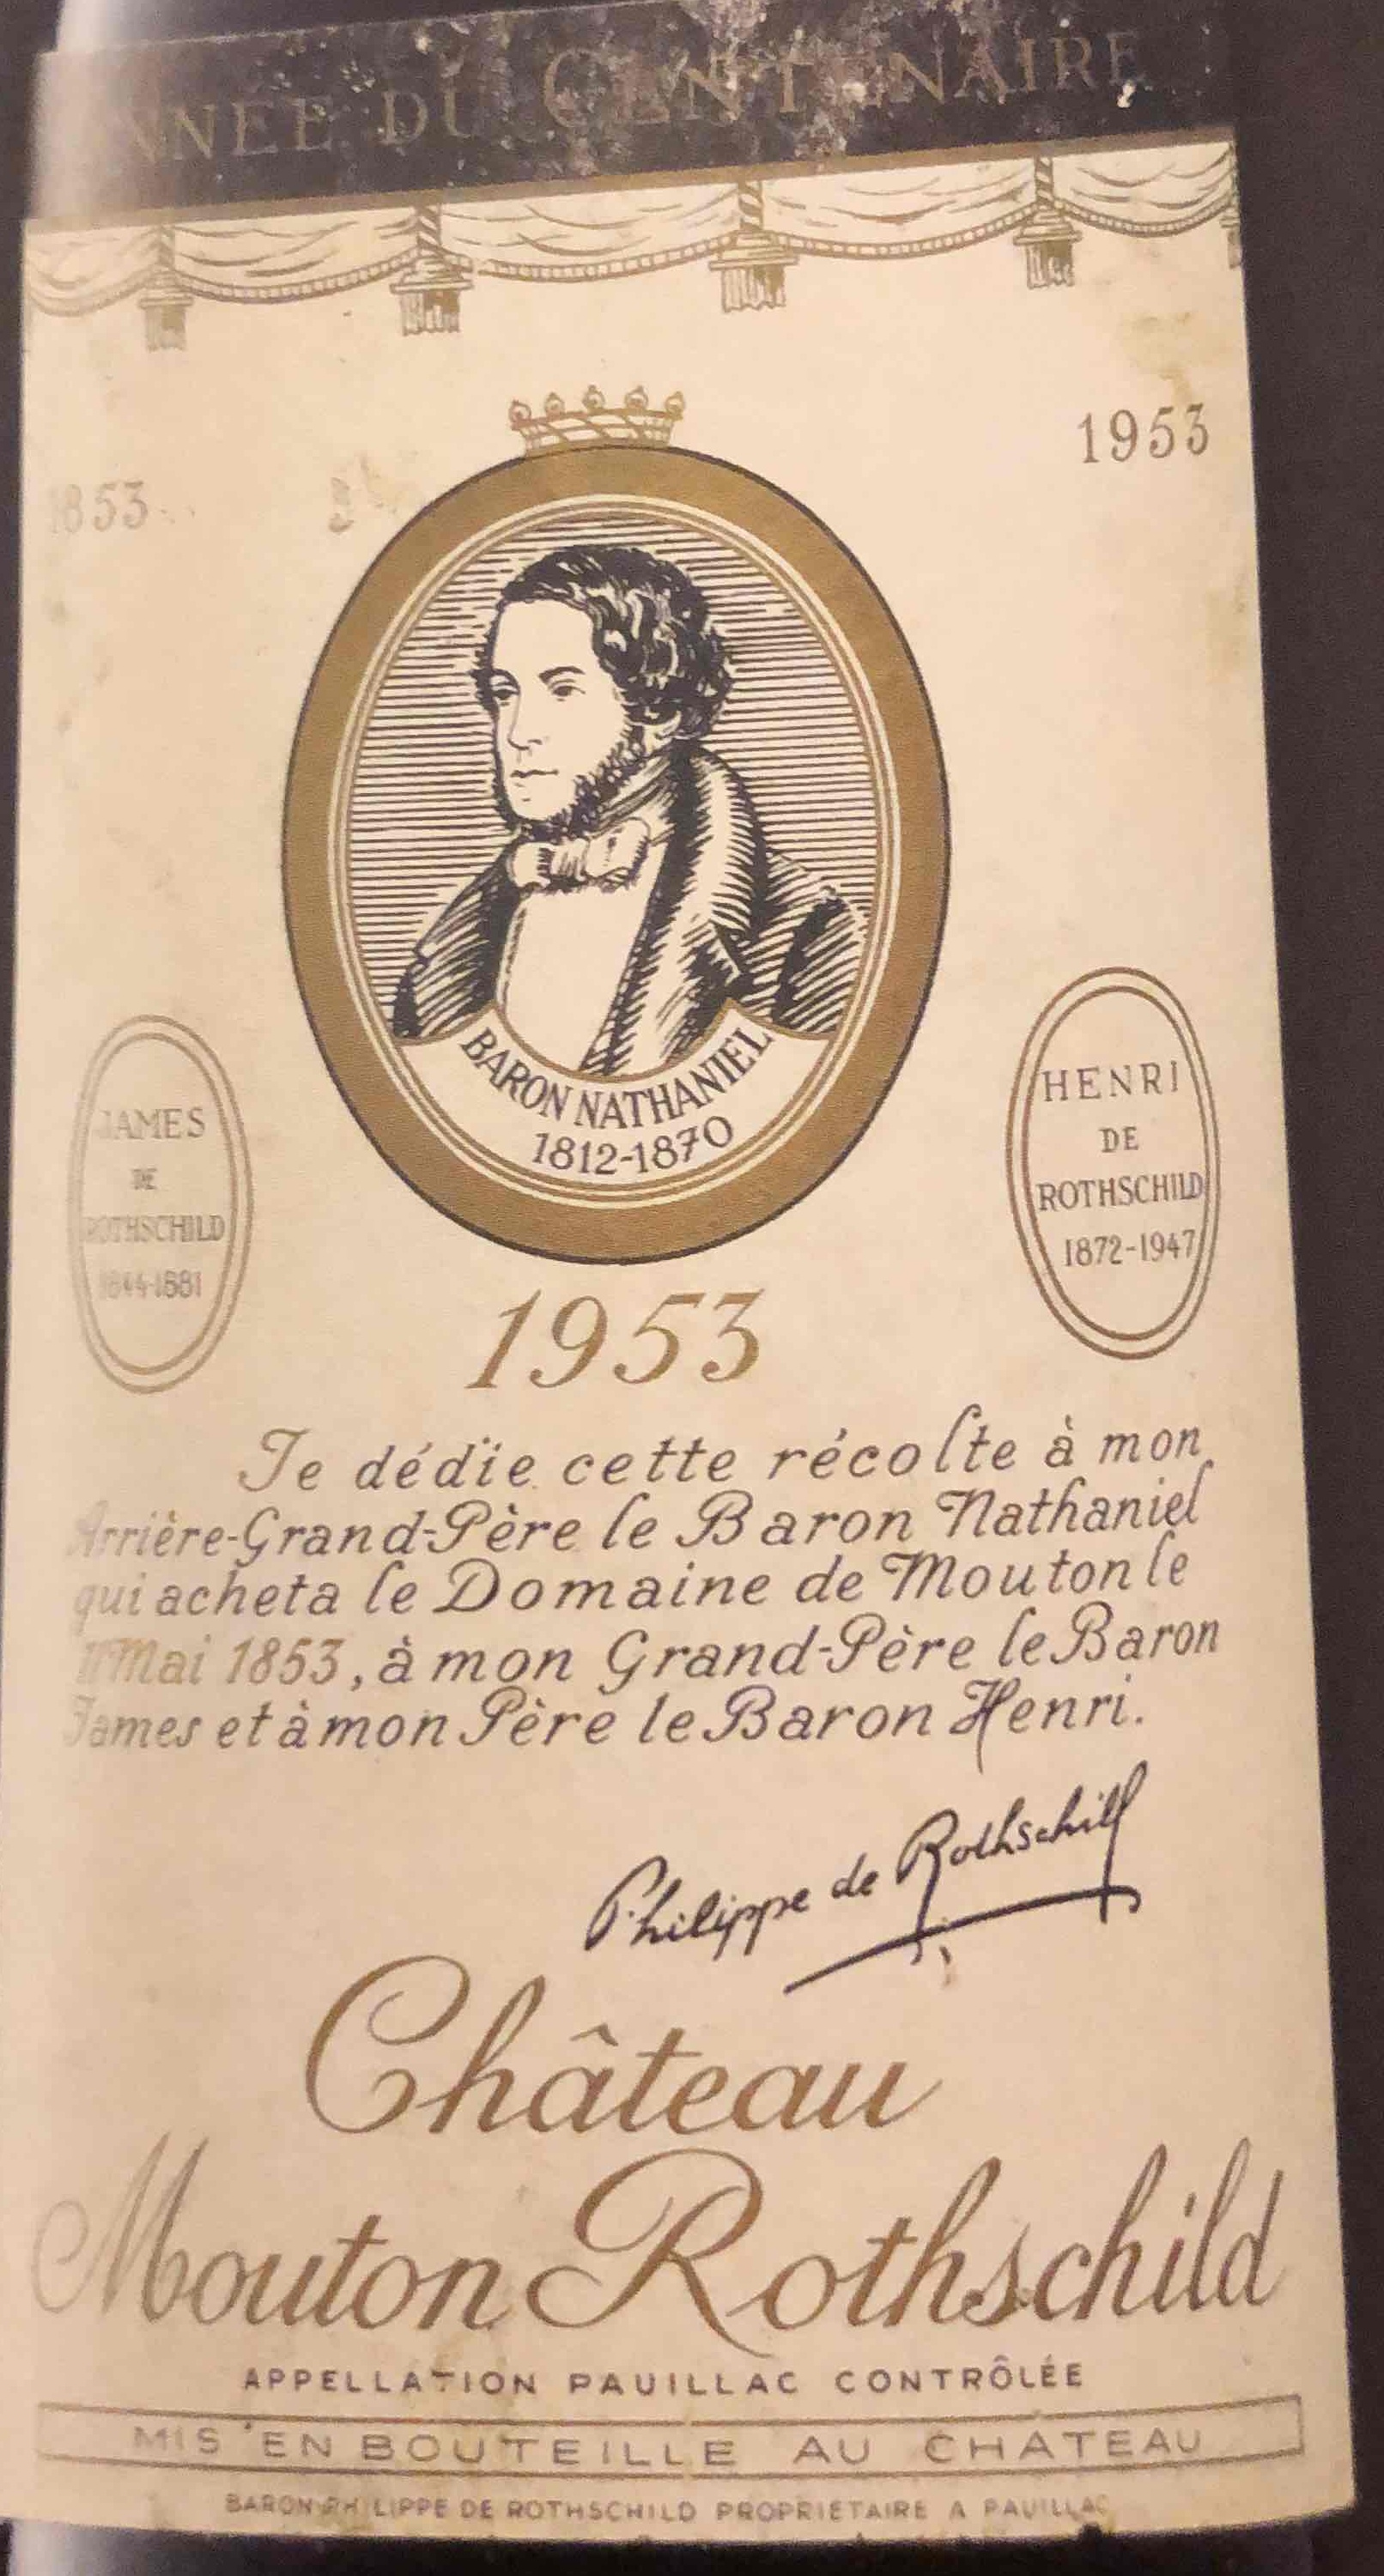 ANNÉE DU CENTENAIRE
1853
1953
BARON NATHANIEL
1812-1870
JAMES
DE
ROTHSCHILD
1844-1881
HENRI
DE
ROTHSCHILD
1872-1947
1953
Je dédie cette récolte à mon
Arrière-Grand-Père le Baron Nathaniel
qui acheta le Domaine de Mouton le
11 Mai 1853, à mon Grand-Père le Baron
James et à mon Père le Baron Henri.
Philippe de Rothschild
Château
Mouton Rothschild
APPELLATION PAUILLAC CONTRÔLÉE
MIS EN BOUTEILLE AU CHÂTEAU
BARON PHILIPPE DE ROTHSCHILD PROPRIETAIRE A PAUILLAC